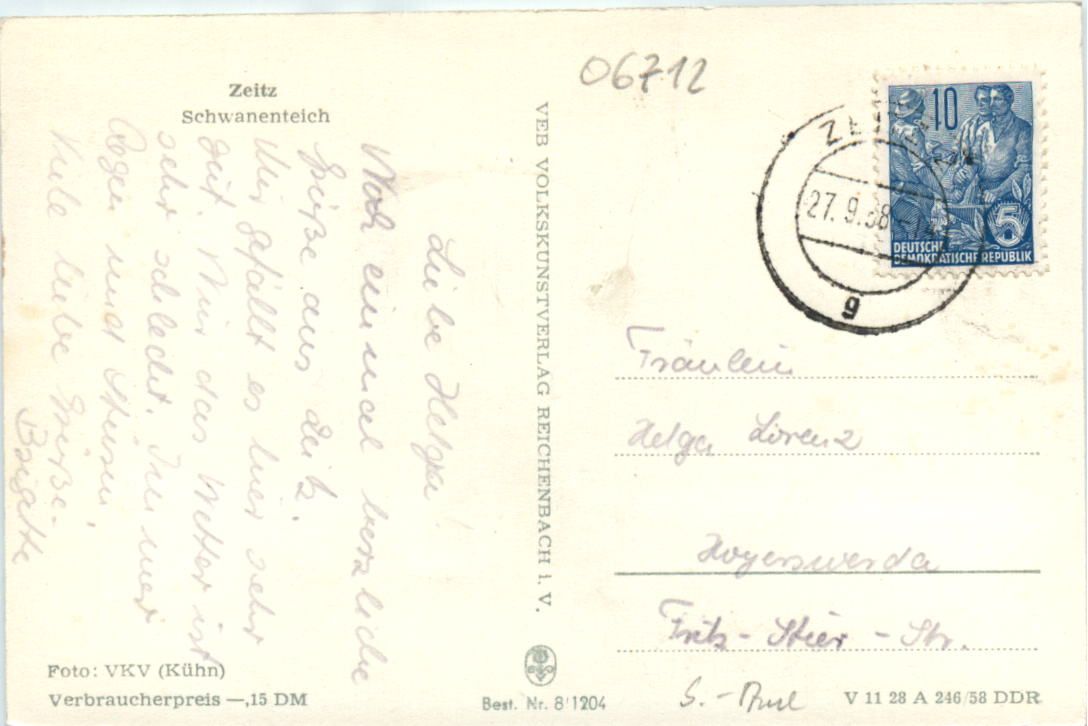 Zeitz
Schwanenteich
Liebe Helga!
Noch einmal herzliche
Grüße aus Zeitz.
Mir gefällt es hier sehr
gut. Nur das Wetter ist
sehr schlecht. Immer
Regen und Stürm.
Viele liebe Grüße.
Brigitte
Foto: VKV (Kühn)
Verbraucherpreis —,15 DM
VEB VOLKSKUNSTVERLAG REICHENBACH i. V.
Best. Nr. 8/1204
06712
27. 9. 58
g
10
5
DEUTSCHE
DEMOKRATISCHE REPUBLIK
Fräulein
Helga Lorenz
Hoyerswerda
Fritz-Stier-Str.
V 11 28 A 246/58 DDR